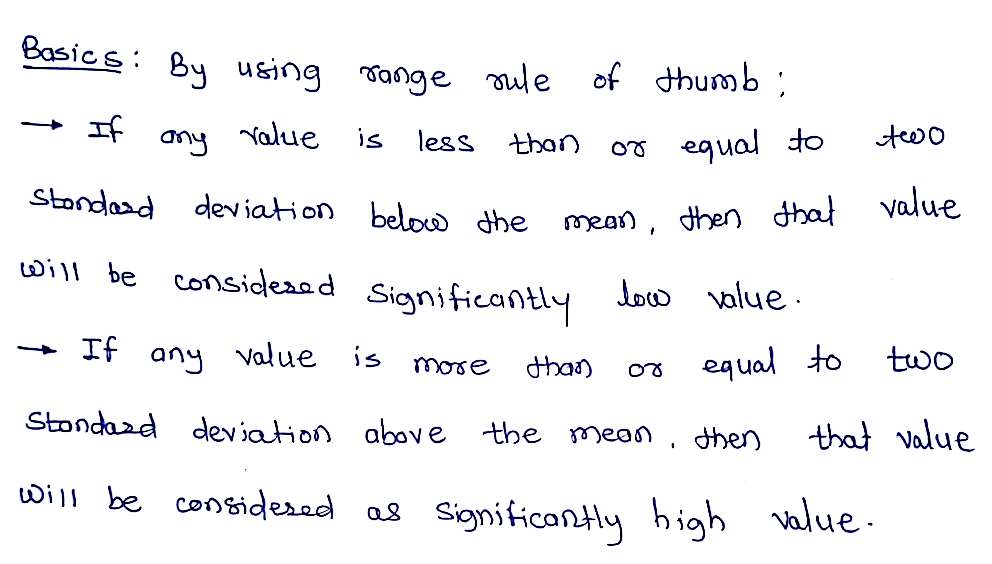 Basics: By using range rule of thumb;
→ If any value is less than or equal to two
standard deviation below the mean, then that value
will be considered significantly low value.
→ If any value is more than or equal to two
standard deviation above the mean, then that value
will be considered as significantly high value.